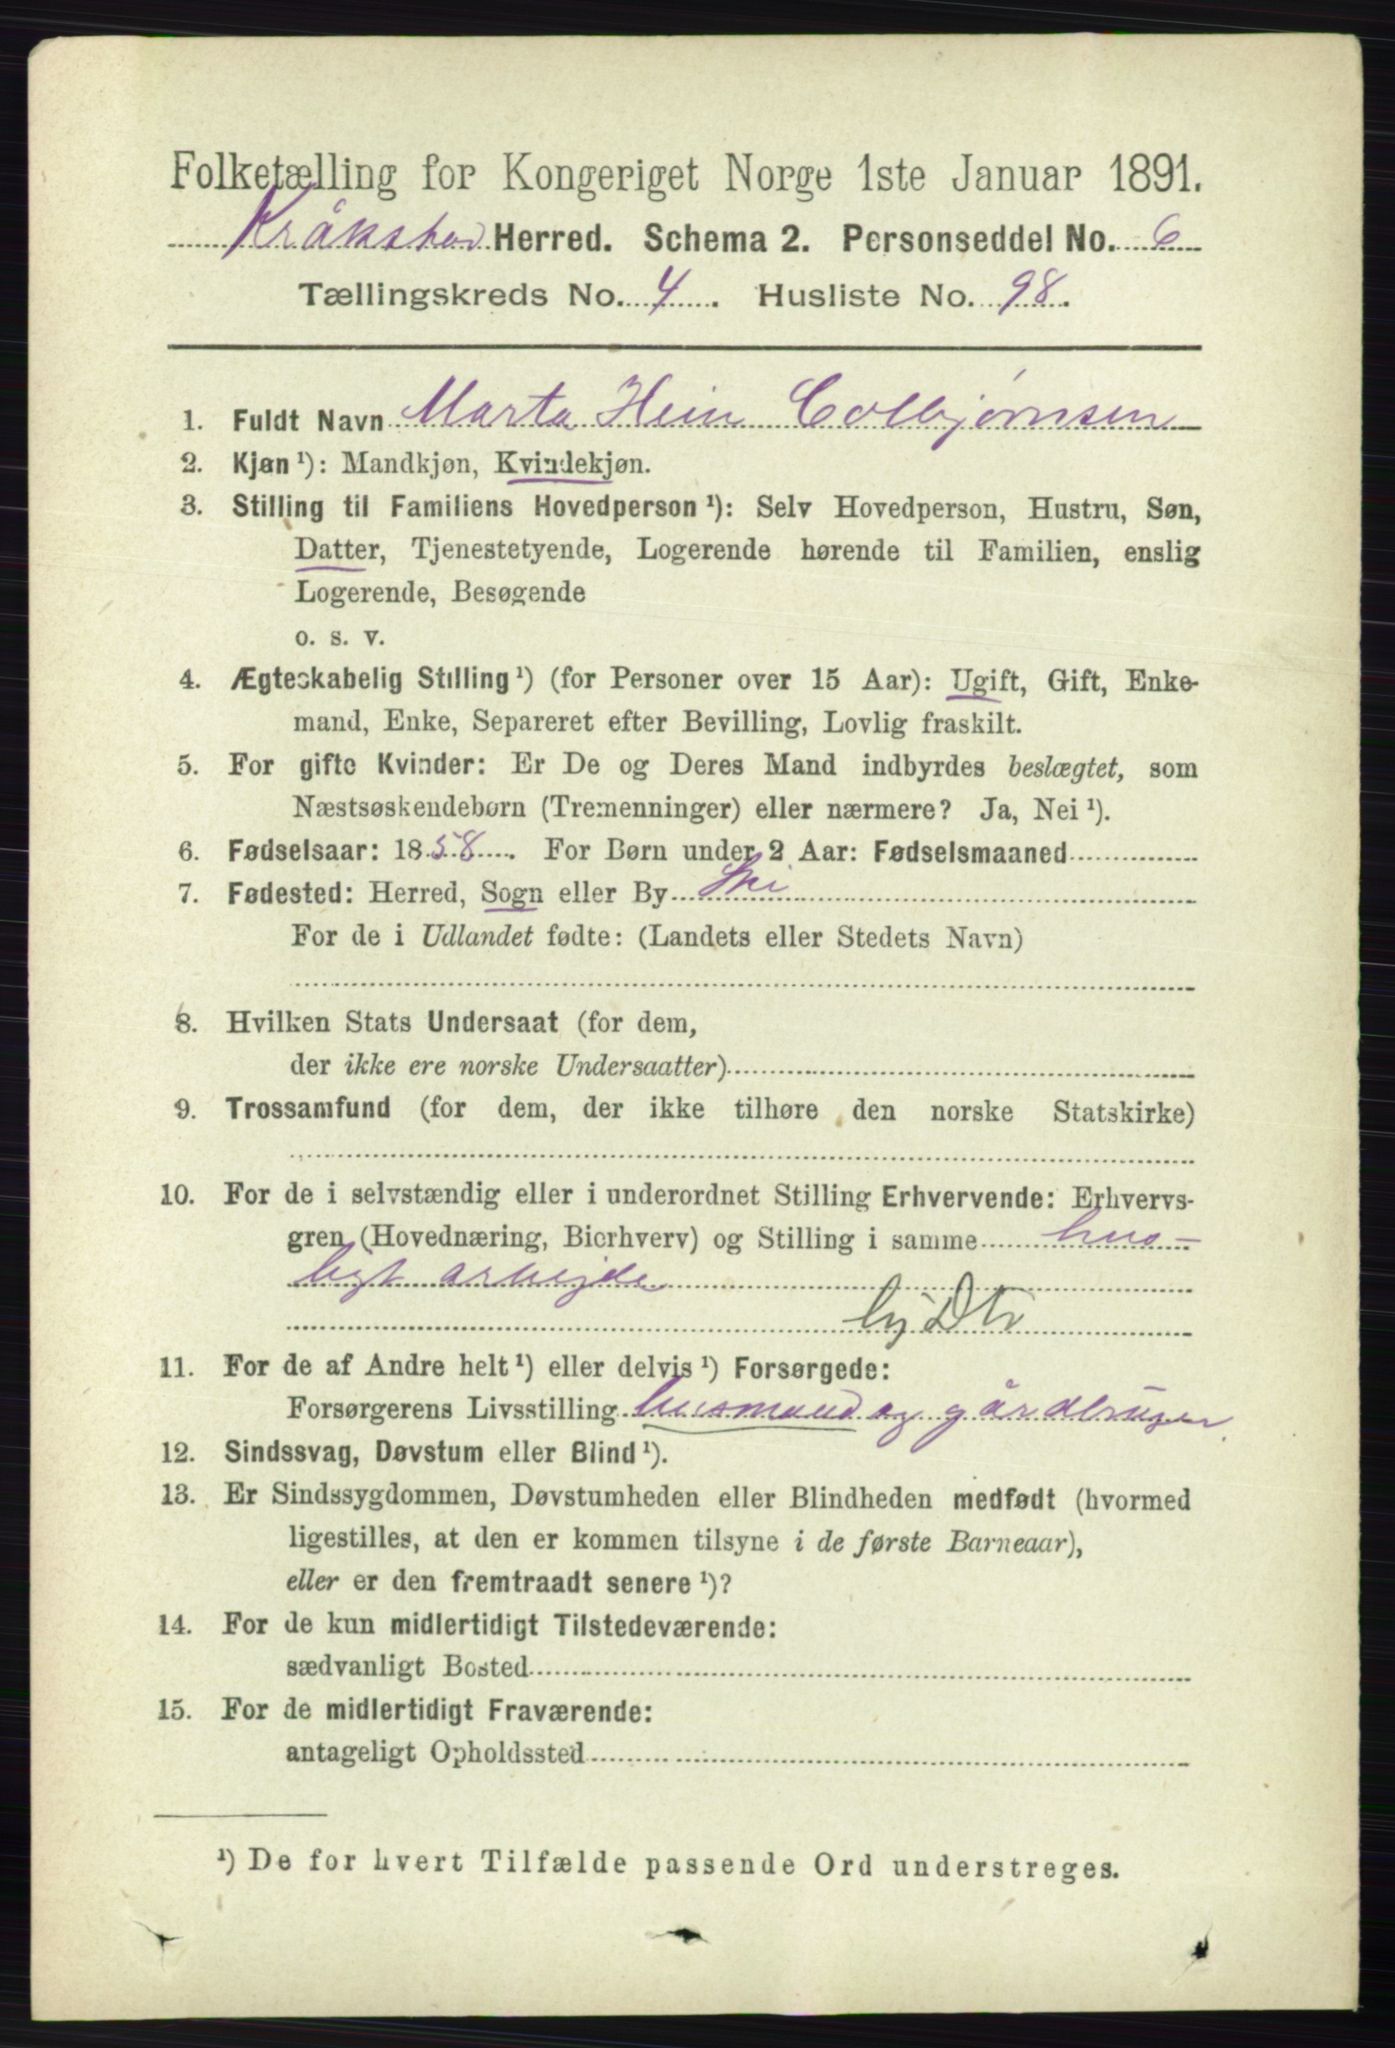 Folketælling for Kongeriget Norge 1ste Januar 1891.
Kråkstad Herred. Schema 2. Personseddel No. 6
Tællingskreds No. 4. Husliste No. 98.
1. Fuldt Navn Marta Hein Colbjørnsen
2. Kjøn ¹): Mandkjøn, Kvindekjøn.
3. Stilling til Familiens Hovedperson ¹): Selv Hovedperson, Hustru, Søn,
Datter, Tjenestetyende, Logerende hørende til Familien, enslig
Logerende, Besøgende
o. s. v.
4. Ægteskabelig Stilling ¹) (for Personer over 15 Aar): Ugift, Gift, Enke-
mand, Enke, Separeret efter Bevilling, Lovlig fraskilt.
5. For gifte Kvinder: Er De og Deres Mand indbyrdes beslægtet, som
Næstsøskendebørn (Tremenninger) eller nærmere? Ja, Nei ¹).
6. Fødselsaar: 1858. For Børn under 2 Aar: Fødselsmaaned
7. Fødested: Herred, Sogn eller By Ski
For de i Udlandet fødte: (Landets eller Stedets Navn)
8. Hvilken Stats Undersaat (for dem,
der ikke ere norske Undersaatter)
9. Trossamfund (for dem, der ikke tilhøre den norske Statskirke)
10. For de i selvstændig eller i underordnet Stilling Erhvervende: Erhvervs-
gren (Hovednæring, Bierhverv) og Stilling i samme hus-
ligt arbejde
11. For de af Andre helt ¹) eller delvis ¹) Forsørgede:
Forsørgerens Livsstilling husmand og gårdbruger.
12. Sindssvag, Døvstum eller Blind ¹).
13. Er Sindssygdommen, Døvstumheden eller Blindheden medfødt (hvormed
ligestilles, at den er kommen tilsyne i de første Barneaar),
eller er den fremtraadt senere ¹)?
14. For de kun midlertidigt Tilstedeværende:
sædvanligt Bosted
15. For de midlertidigt Fraværende:
antageligt Opholdssted
¹) De for hvert Tilfælde passende Ord understreges.